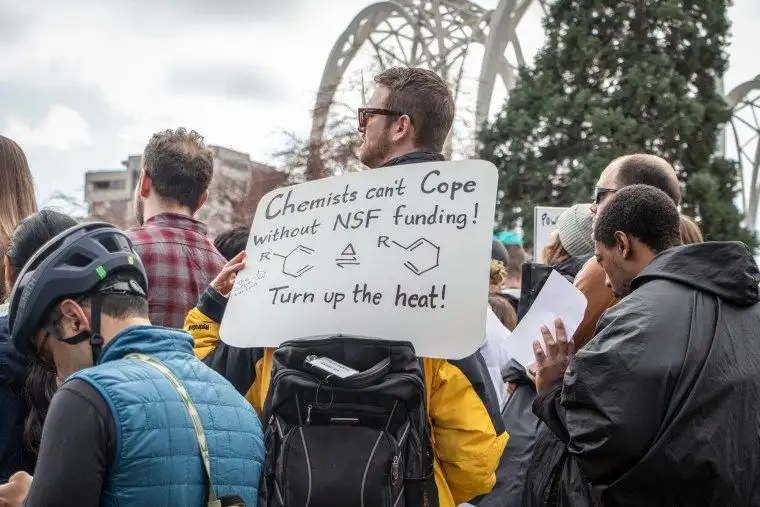 Chemists can't Cope
without NSF funding!
R Δ R
Turn up the heat!